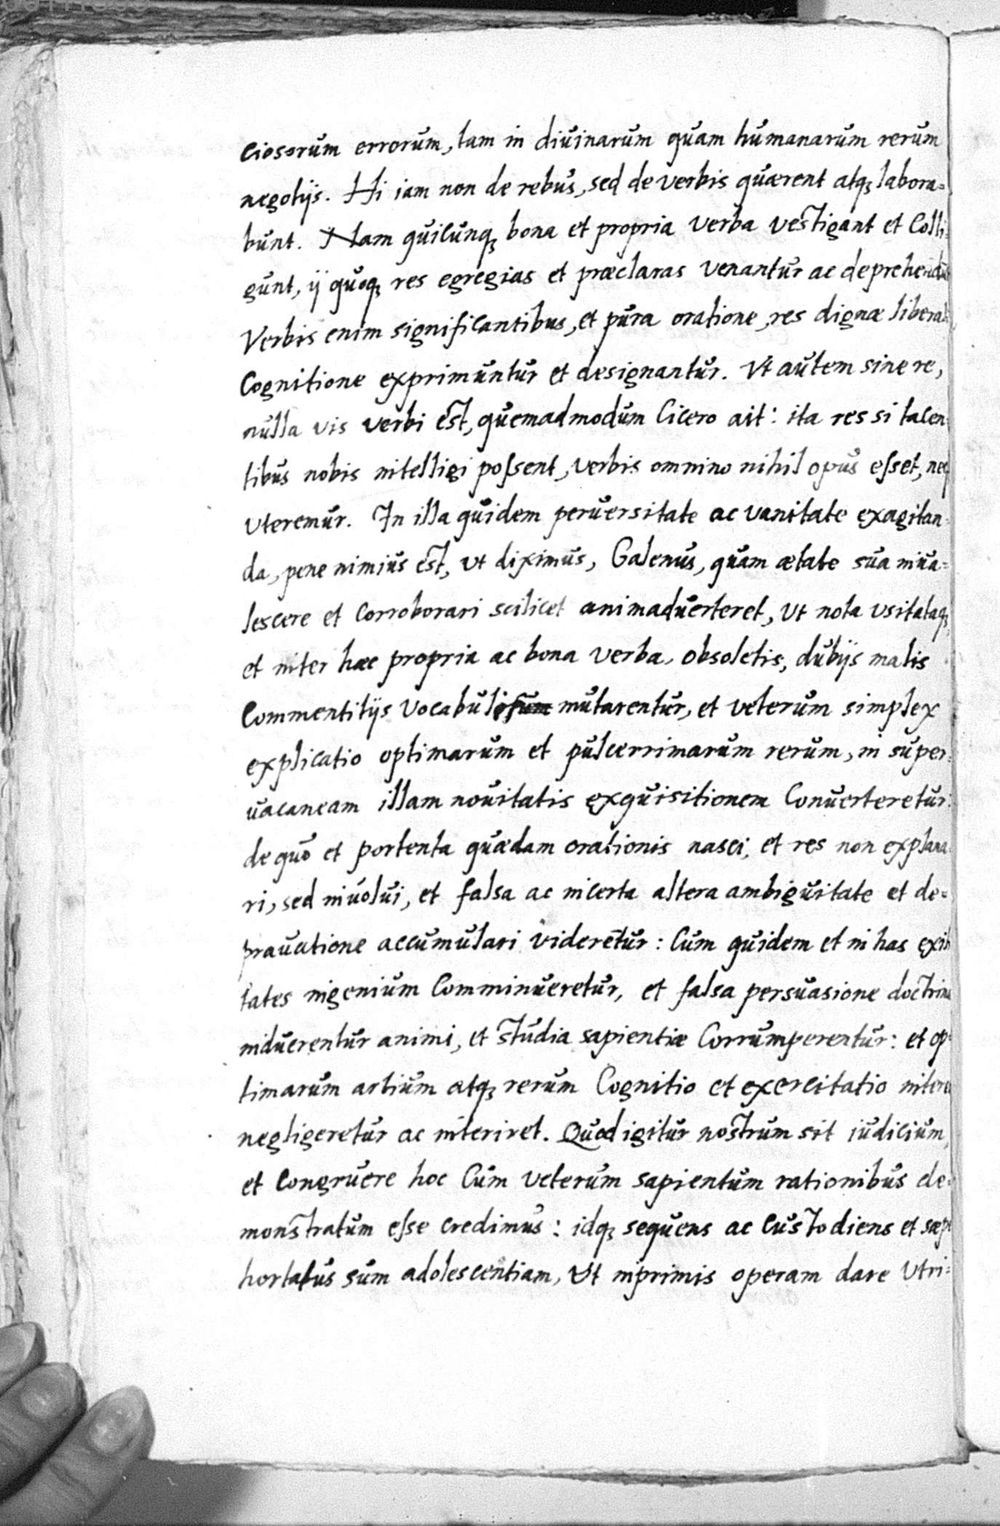 ciosorum errorum, tam in diuinarum quam humanarum rerum
negotijs. Hi iam non de rebus, sed de verbis quærent atq; labora=
bunt. Nam quicunq; bona et propria verba vestigant et colli
gunt, ij quoq; res egregias et præclaras venantur ac
Verbis enim significantibus, et pura oratione, res dignæ
cognitione exprimuntur et designantur. Vt autem sine re,
nulla vis verbi est, quemadmodum Cicero ait: ita res si tacen
tibus nobis intelligi possent, verbis omnino nihil opus esset,
vteremur. In illa quidem peruersitate ac vanitate exagitan
da, pene nimius est, vt diximus, Galenus, quam ætate sua inua=
lescere et corroborari scilicet animaduerteret, vt nota vsitataq;
et inter hæc propria ac bona verba, obsoletis, dubijs malis
commentitijs mutarentur, et veterum simplex
explicatio optimarum et pulcerrimarum rerum, in super
uacaneam illam nouitatis exquisitionem conuerteretur:
de quo et portenta quædam orationis nasci, et res non explana
ri, sed inuolui, et falsa ac incerta altera ambiguitate et de=
prauatione accumulari videretur: cum quidem et in has exili
tates ingenium comminueretur, et falsa persuasione
induerentur animi, et studia sapientiæ corrumperentur: et op
timarum artium atq; rerum cognitio et exercitatio
negligeretur ac interiret. Quod igitur nostrum sit iudicium,
et congruere hoc cum veterum sapientum rationibus de=
monstratum esse credimus: idq; sequens ac custodiens et
hortatus sum adolescentiam, vt inprimis operam dare vtri=